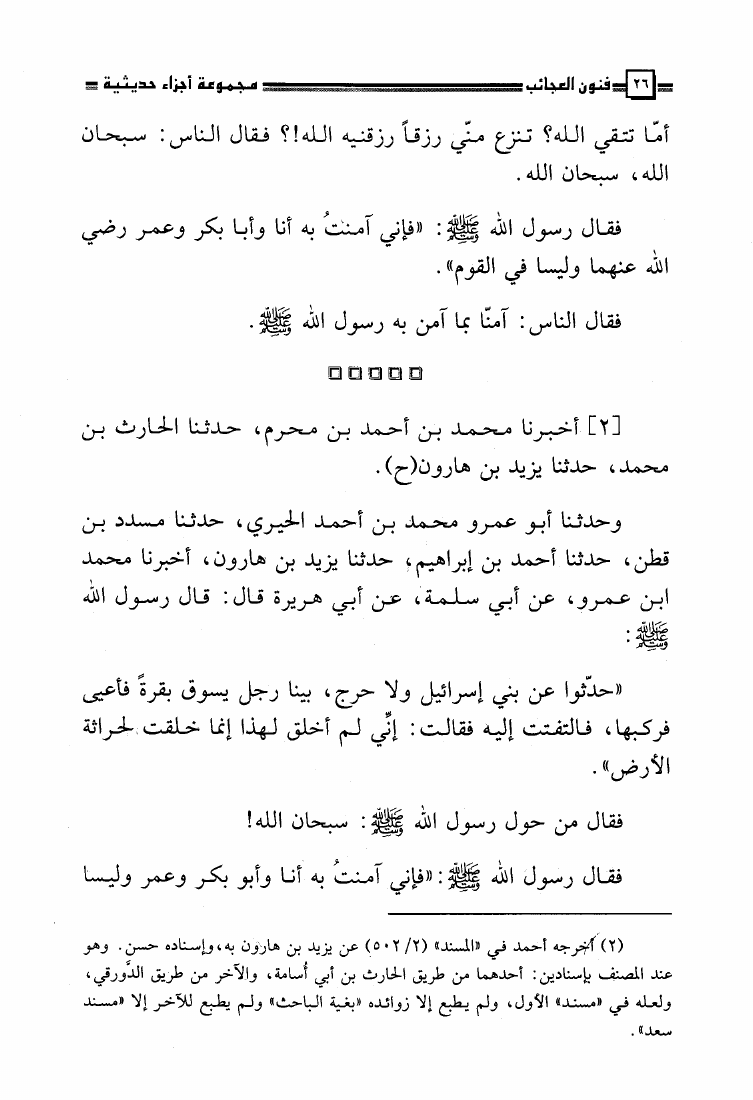 ٢٦ فنون العجائب مجموعة أجزاء حديثية
أمّا تتقي الله؟ تنزع منّي رزقاً رزقنيه الله!؟ فقال الناس: سبحان
الله، سبحان الله.
فقال رسول الله ﷺ: «فإني آمنتُ به أنا وأبا بكر وعمر رضي
الله عنهما وليسا في القوم».
فقال الناس: آمنّا بما آمن به رسول الله ﷺ.
□□□□□
[٢] أخبرنا محمد بن أحمد بن محرم، حدثنا الحارث بن
محمد، حدثنا يزيد بن هارون(ح).
وحدثنا أبو عمرو محمد بن أحمد الحيري، حدثنا مسدد بن
قطن، حدثنا أحمد بن إبراهيم، حدثنا يزيد بن هارون، أخبرنا محمد
ابن عمرو، عن أبي سلمة، عن أبي هريرة قال: قال رسول الله
ﷺ:
«حدّثوا عن بني إسرائيل ولا حرج، بينا رجل يسوق بقرةً فأعيى
فركبها، فالتفتت إليه فقالت: إنِّي لم أخلق لهذا إنما خلقت لحراثة
الأرض».
فقال من حول رسول الله ﷺ: سبحان الله!
فقال رسول الله ﷺ: «فإني آمنتُ به أنا وأبو بكر وعمر وليسا
(٢) أخرجه أحمد في «المسند» (٥٠٢/٢) عن يزيد بن هارون به، وإسناده حسن. وهو
عند المصنف بإسنادين: أحدهما من طريق الحارث بن أبي أُسامة، والآخر من طريق الدَّورقي،
ولعله في «مسند» الأول، ولم يطبع إلا زوائده «بغية الباحث» ولم يطبع للآخر إلا «مسند
سعد».